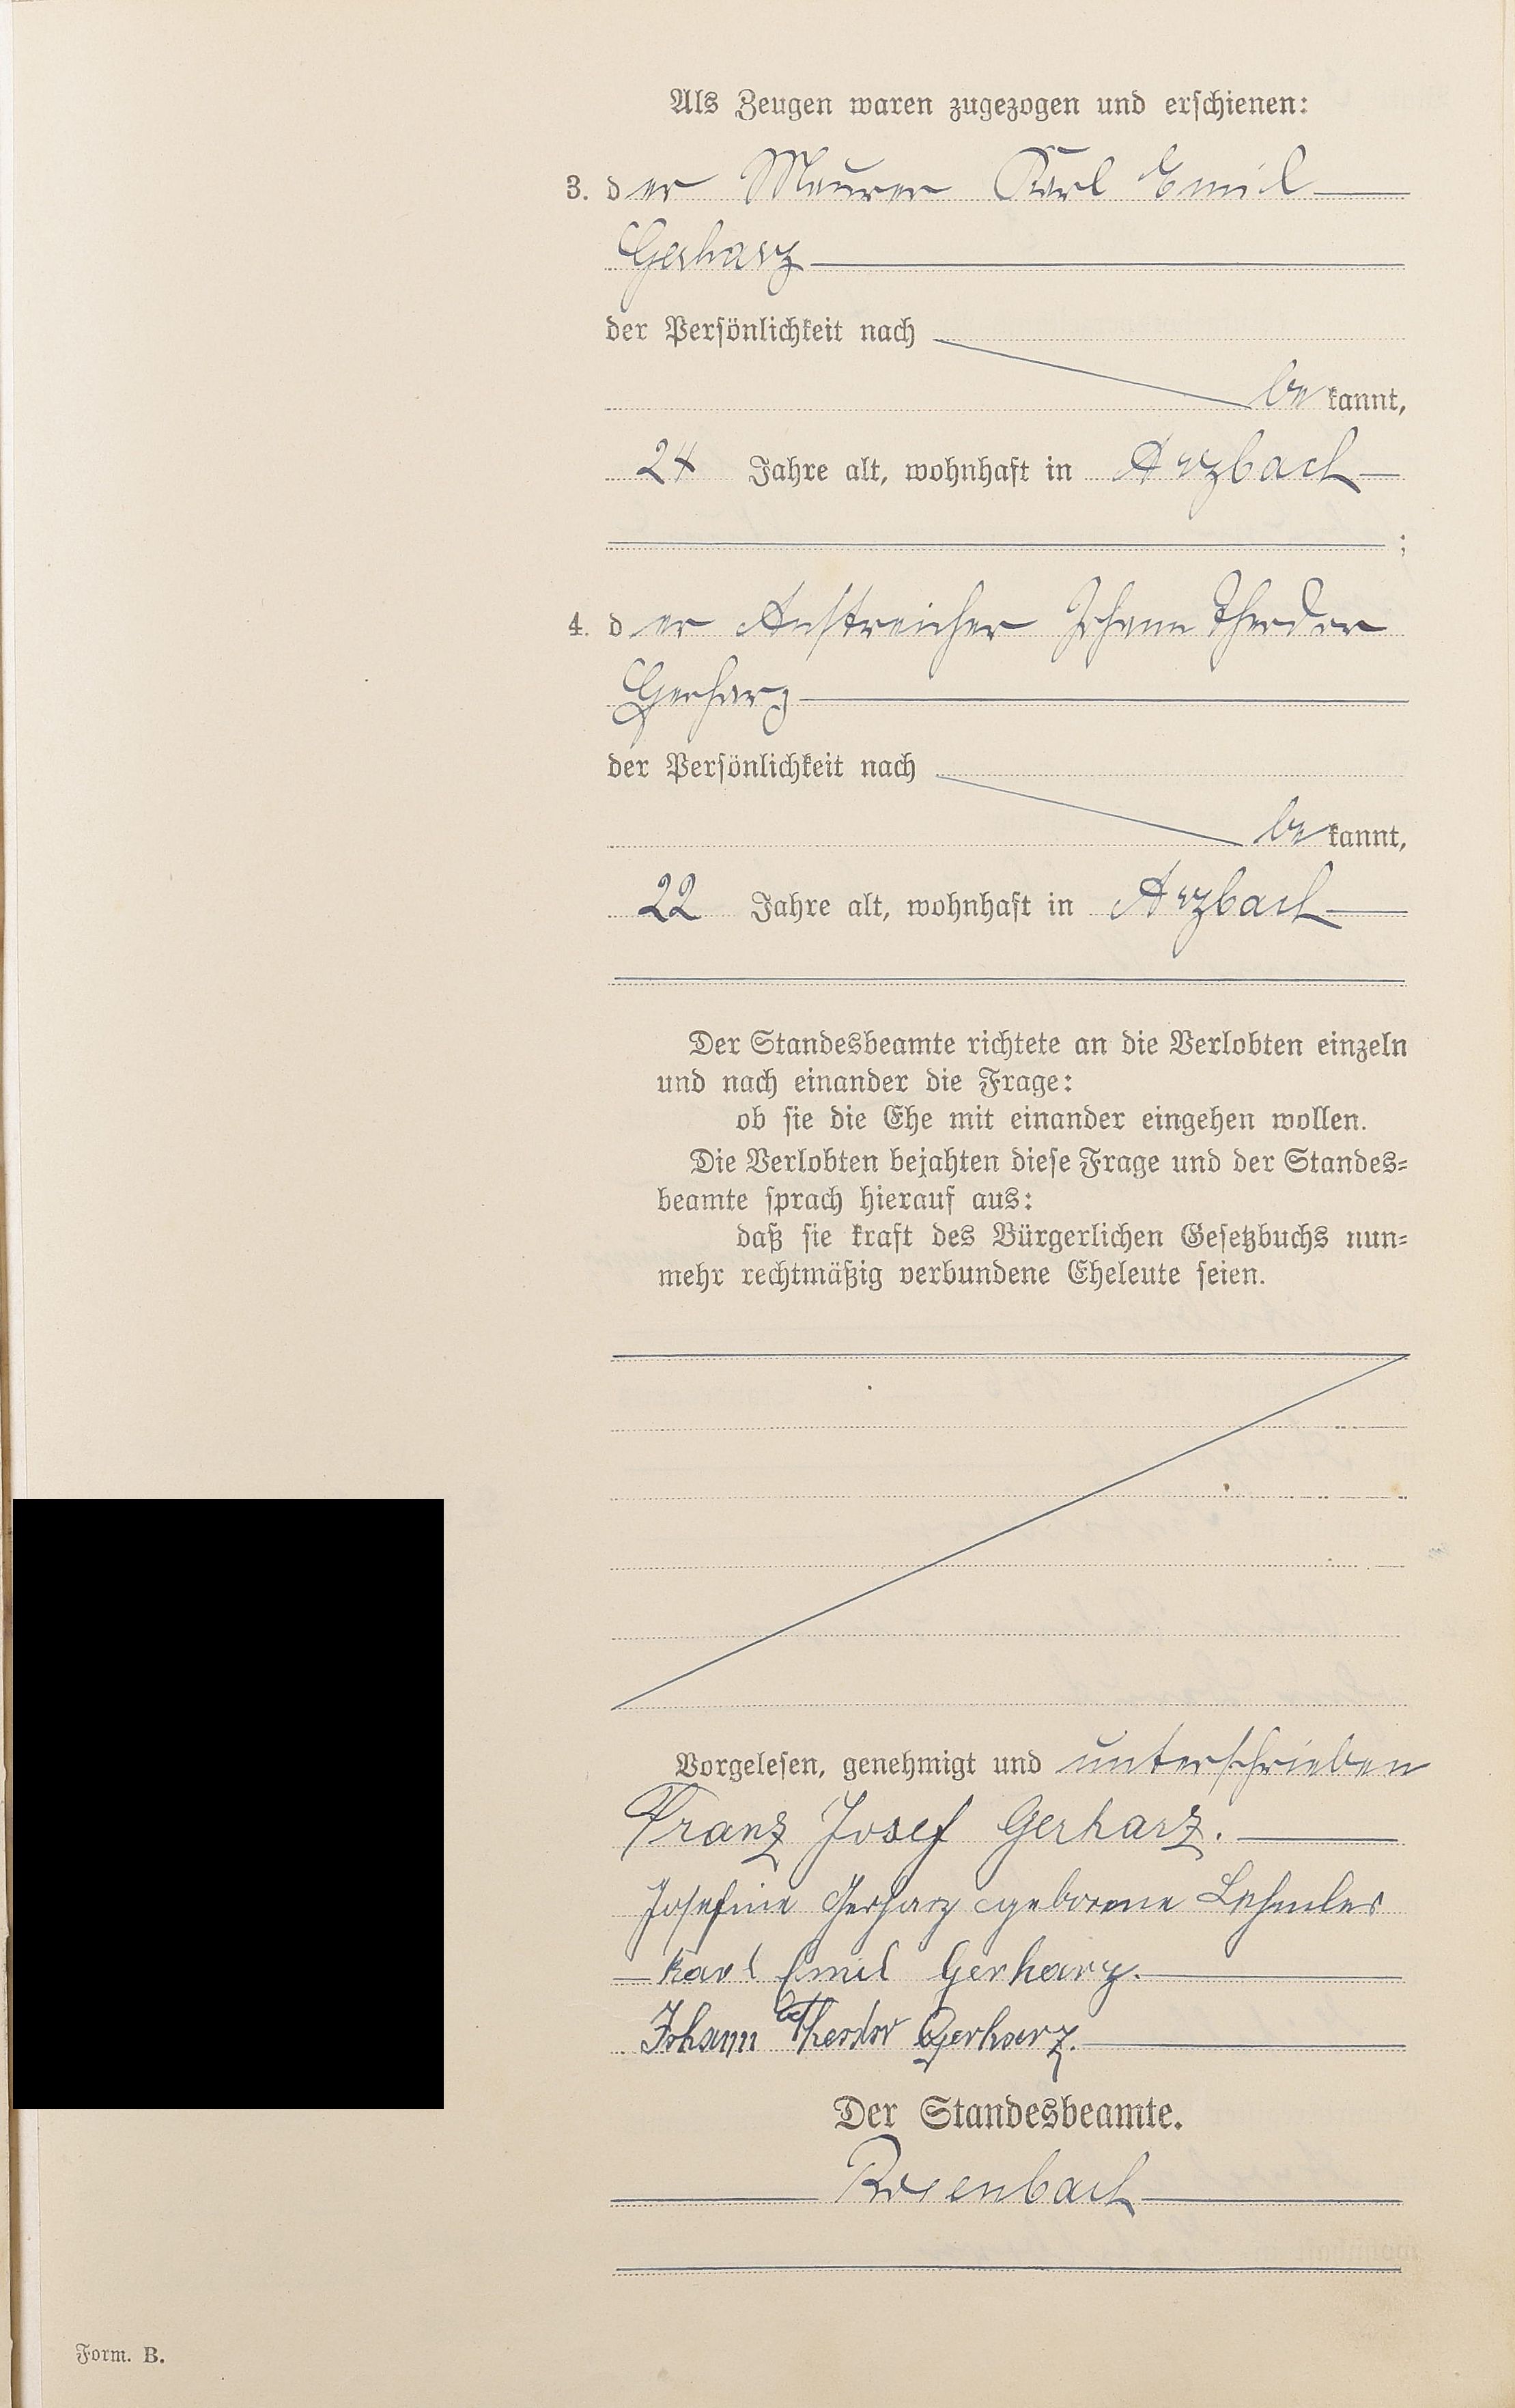 Als Zeugen waren zugezogen und erschienen:
3. der Maurer Karl Emil
Gerharz
der Persönlichkeit nach
be kannt,
24 Jahre alt, wohnhaft in Arzbach
;
4. der Anstreicher Johann Theodor
Gerharz
der Persönlichkeit nach
be kannt,
22 Jahre alt, wohnhaft in Arzbach
Der Standesbeamte richtete an die Verlobten einzeln
und nach einander die Frage:
ob sie die Ehe mit einander eingehen wollen.
Die Verlobten bejahten diese Frage und der Standes-
beamte sprach hierauf aus:
daß sie kraft des Bürgerlichen Gesetzbuchs nun-
mehr rechtmäßig verbundene Eheleute seien.
Vorgelesen, genehmigt und unterschrieben
Franz Josef Gerharz.
Josefine Gerharz geborene Lehmler
Karl Emil Gerharz.
Johann Theodor Gerharz.
Der Standesbeamte.
Rosenbach
Form. B.